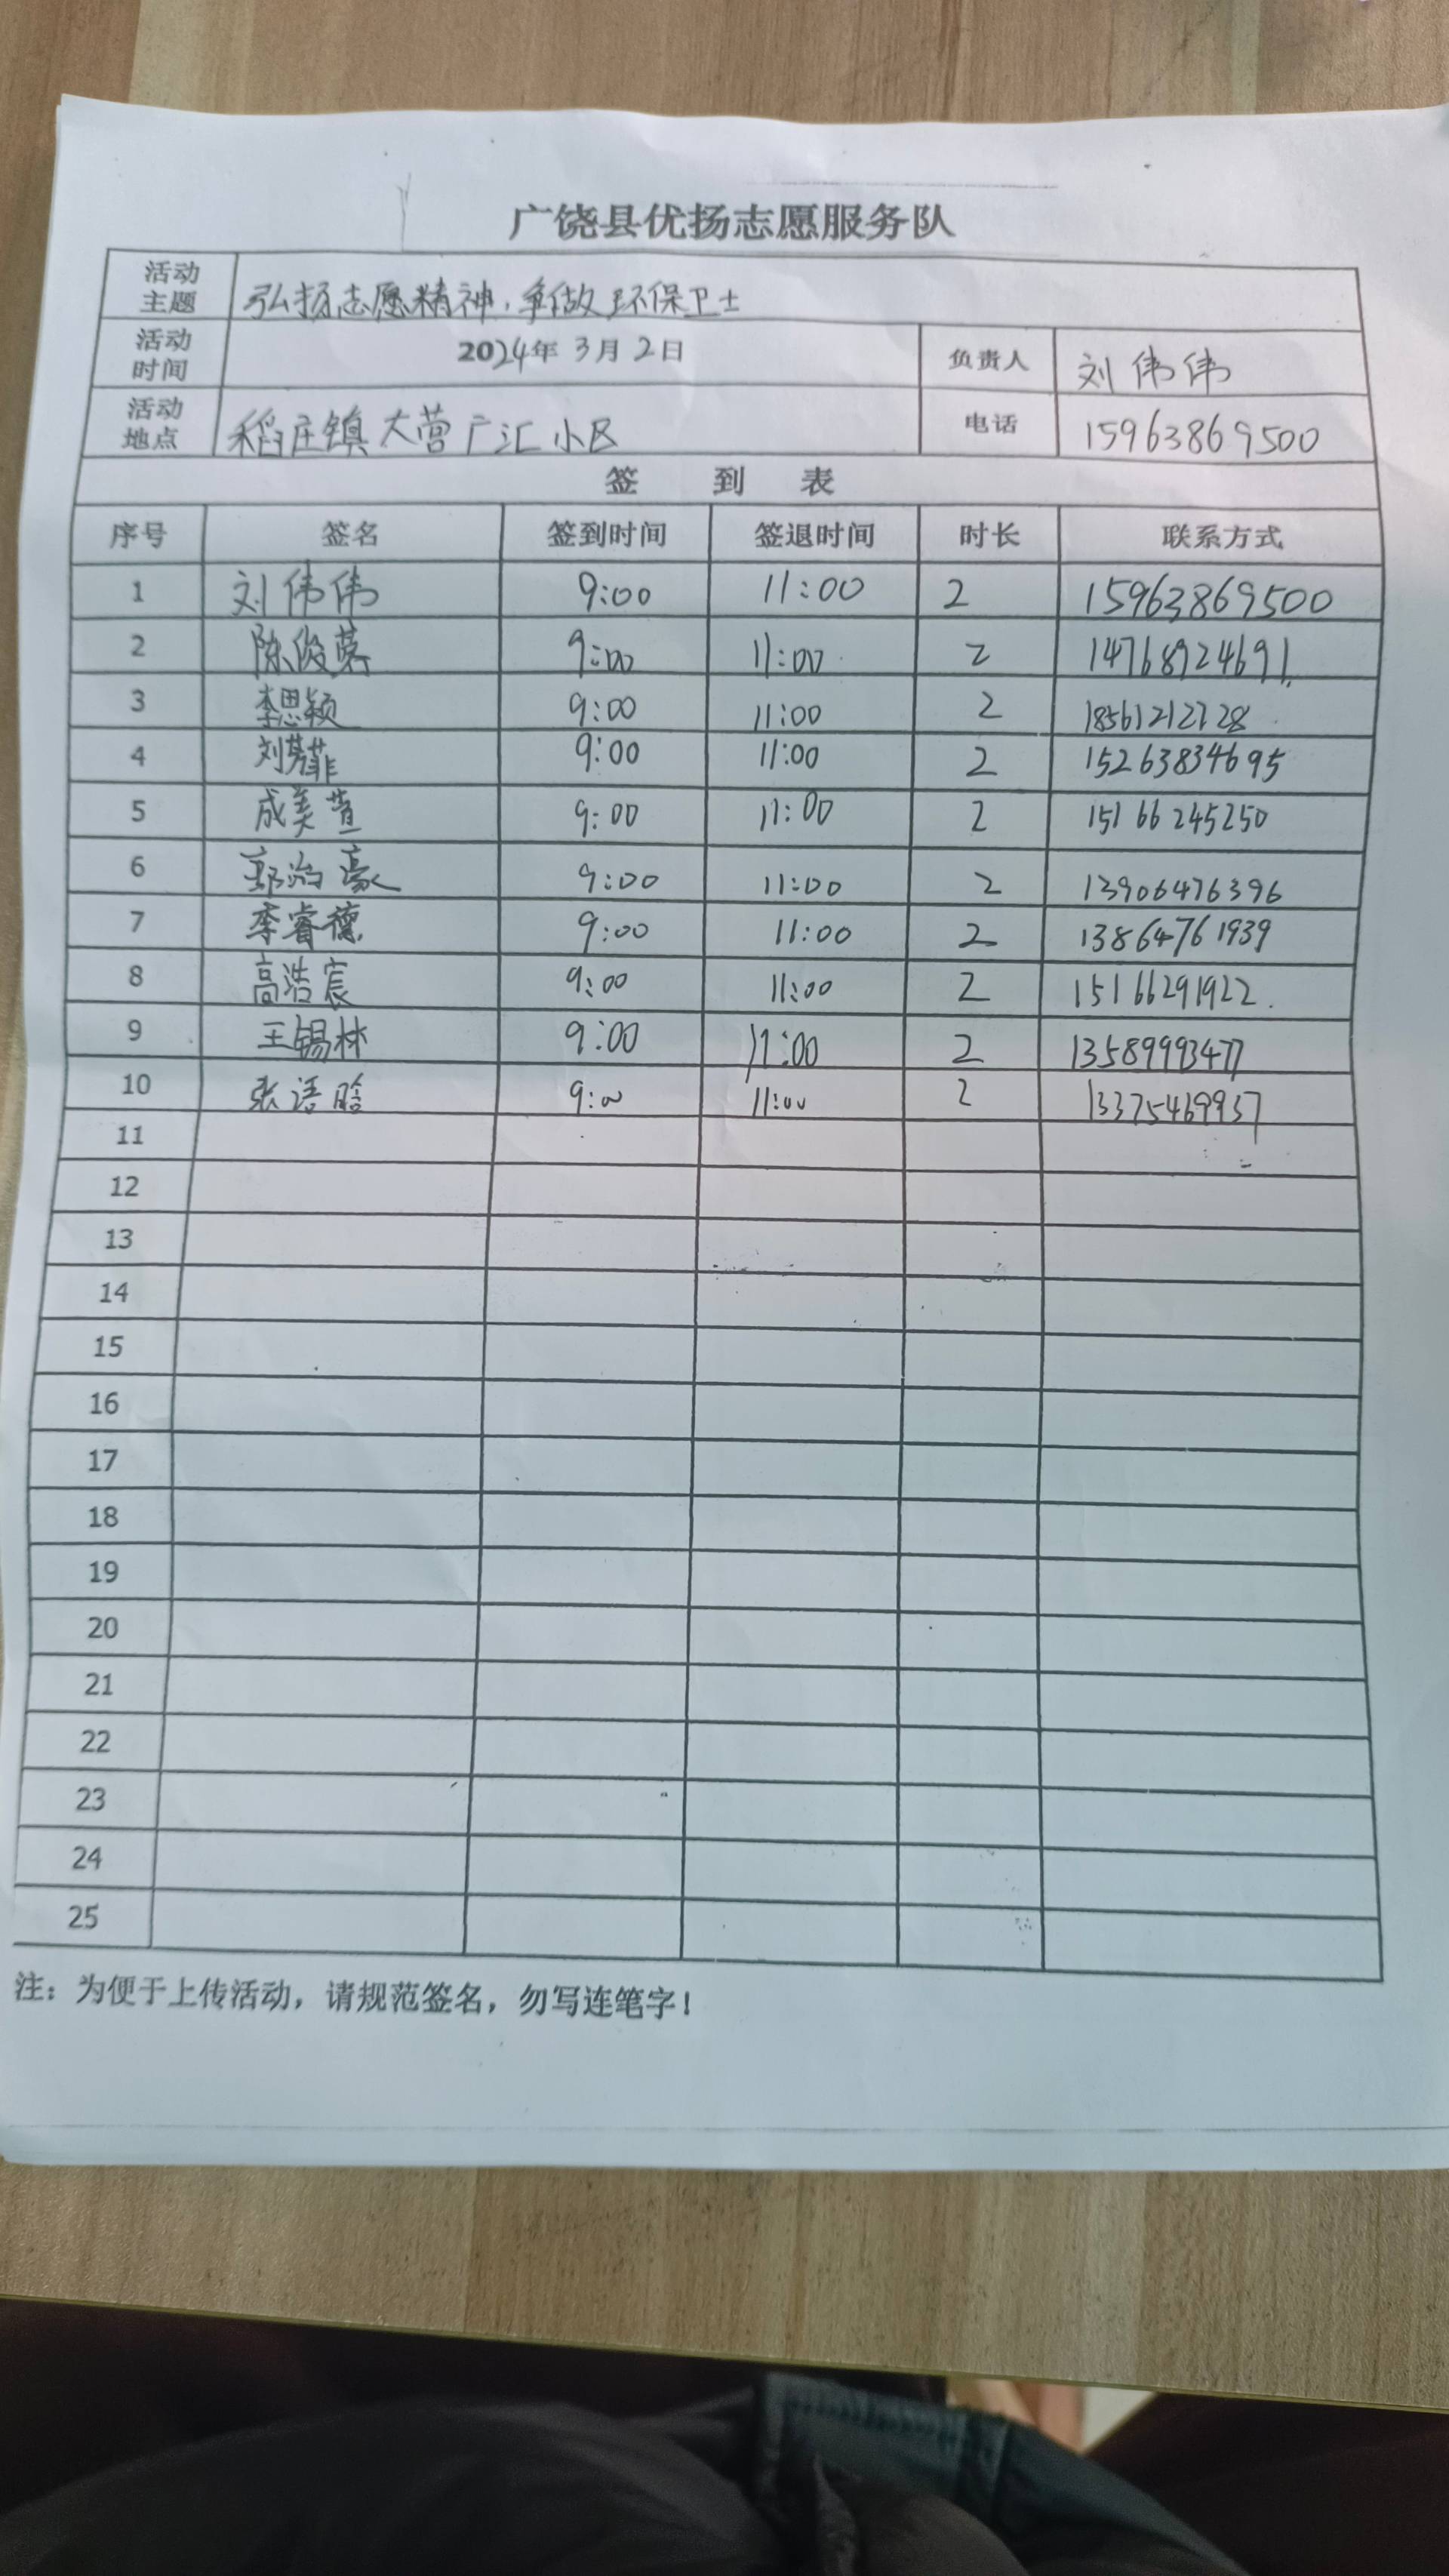 广饶县优扬志愿服务队
活动主题 弘扬志愿精神，争做环保卫士
活动时间 2024年 3月 2日 负责人 刘伟伟
活动地点 稻庄镇大营广汇小区 电话 15963869500
签 到 表
序号 签名 签到时间 签退时间 时长 联系方式
1 刘伟伟 9:00 11:00 2 15963869500
2 陈俊蓉 9:00 11:00 2 14768924691
3 李思颖 9:00 11:00 2 18561212728
4 刘 9:00 11:00 2 15263834695
5 成美萱 9:00 11:00 2 15166245250
6 郭治豪 9:00 11:00 2 13906476396
7 李睿德 9:00 11:00 2 13864761939
8 高浩宸 9:00 11:00 2 15166291922
9 王锡林 9:00 11:00 2 13589993477
10 张语晗 9:00 11:00 2 13375469937
11
12
13
14
15
16
17
18
19
20
21
22
23
24
25
注：为便于上传活动，请规范签名，勿写连笔字！